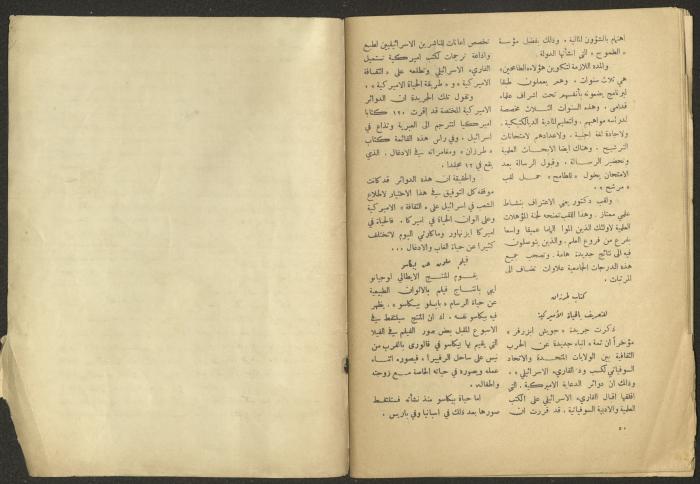 اهتمام بالشؤون المالية . وذلك بفضل مؤسسة
« الطموح » التي أنشأتها الدولة .
والمدة اللازمة لتكوين هؤلاء الطامحين
هي ثلاث سنوات . وهم يعملون طبقا
لبرنامج يضعونه بأنفسهم تحت اشراف علماء
قدامى . وهذه السنوات الثلاث مخصصة
لدراسة مواهبهم . ولتعليم المادية الديالكتيكية .
ولاجادة لغة اجنبية . ولاعدادهم لامتحانات
الترشيح . وهناك ايضا الابحاث العلمية
وتحضير الرسالة . وقبول الرسالة بعد
الامتحان يخول « للطامح » حمل لقب
« مرشح » .
ولقب دكتور يعني الاعتراف بنشاط
علمي ممتاز . وهذا اللقب تمنحه لجنة المؤهلات
العلمية لاولئك الذين الموا الماما عميقا واسعا
بفرع من فروع العلم . والذين يتوصلون
فيه الى نتائج جديدة هامة . وتصحب جميع
هذه الدرجات الجامعية علاوات تضاف الى
المرتبات .
كتاب طرزان
للتعريف بالحياة الأميركية
ذكرت جريدة « جويش ابزرفر »
مؤخراً ان ثمة « انباء جديدة عن الحرب
الثقافية بين الولايات المتحدة والاتحاد
السوفياتي لكسب ود القارىء الاسرائيلي » .
وذلك ان دوائر الدعاية الاميركية . التي
اقلقها إقبال القارىء الاسرائيلي على الكتب
العلمية والادبية السوفياتية . قد قررت ان
٥٠
تخصص إعانات للناشرين الاسرائيليين لطبع
واذاعة ترجمات لكتب اميركية تستميل
القارىء الاسرائيلي وتطلعه على « الثقافة
الاميركية » و « طريقة الحياة الاميركية » .
وتقول تلك الجريدة ان الدوائر
الاميركية المختصة قد اقرت ١٢٠ كتابا
اميركيا لتترجم الى العبرية وتذاع في
اسرائيل . وفي رأس هذه القائمة كتاب
« طرزان » ومغامراته في الادغال . الذي
يقع في ١٢ مجلدا .
والحقيقة ان هذه الدوائر قد كانت
موفقة كل التوفيق في هذا الاختيار لاطلاع
الشعب في اسرائيل على « الثقافة » الاميركية
وعلى الوان الحياة في اميركا . فالحياة في
اميركا ايزنهاور وماكارثي اليوم لا تختلف
كثيرا عن حياة الغاب والادغال ...
فيلم ملون عن بيكاسو
يقوم المنتج الايطالي لوجيانو
ايمي بانتاج فيلم بالالوان الطبيعية
عن حياة الرسام « بابلو بيكاسو » . يظهر
فيه بيكاسو نفسه . اذ ان المنتج سيلتقط في
الاسبوع المقبل بعض صور الفيلم في الفيلا
التي يقيم بها بيكاسو في فالوري بالقرب من
نيس على ساحل الرفييرا . فيصوره اثناء
عمله ويصوره في حياته الخاصة مع زوجته
واطفاله .
اما حياة بيكاسو منذ نشأته فستلتقط
صورها بعد ذلك في اسبانيا وفي باريس .